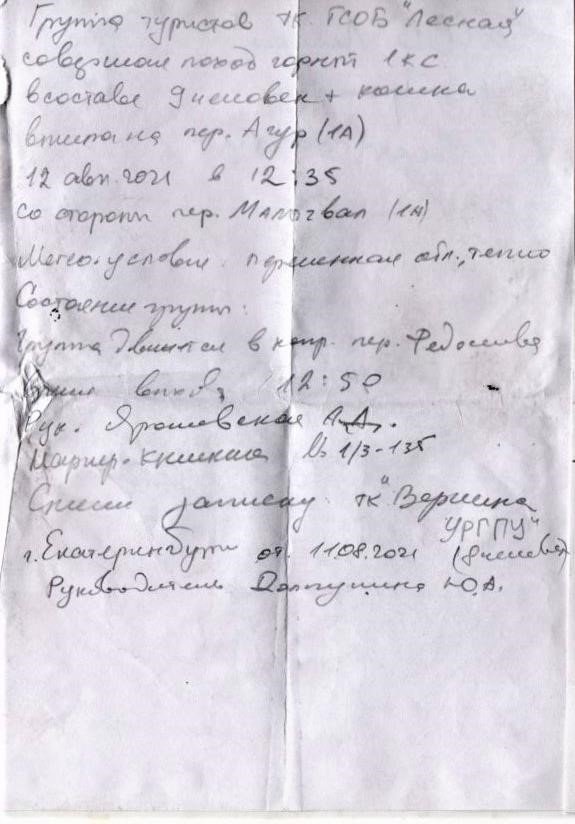 Группа туристов тк. ГСОБ "Лесная"
совершая поход горный 1 кс.
в составе 9 человек + кошка
взошла на пер. Агур (1А)
12 авг. 2021 в 12:35
со стороны пер. (1А)
Метео. условия: переменная обл., тепло
Состояние группы:
Группа движется в напр. пер. Федосеева
12:50
Рук. Ярошевская А.А.
Маршр. книжка № 1/3-135
Сняли записку тк "Вершина
УРГПУ"
г. Екатеринбург от 11.08.2021 (8 человек)
Руководитель Ю.А.